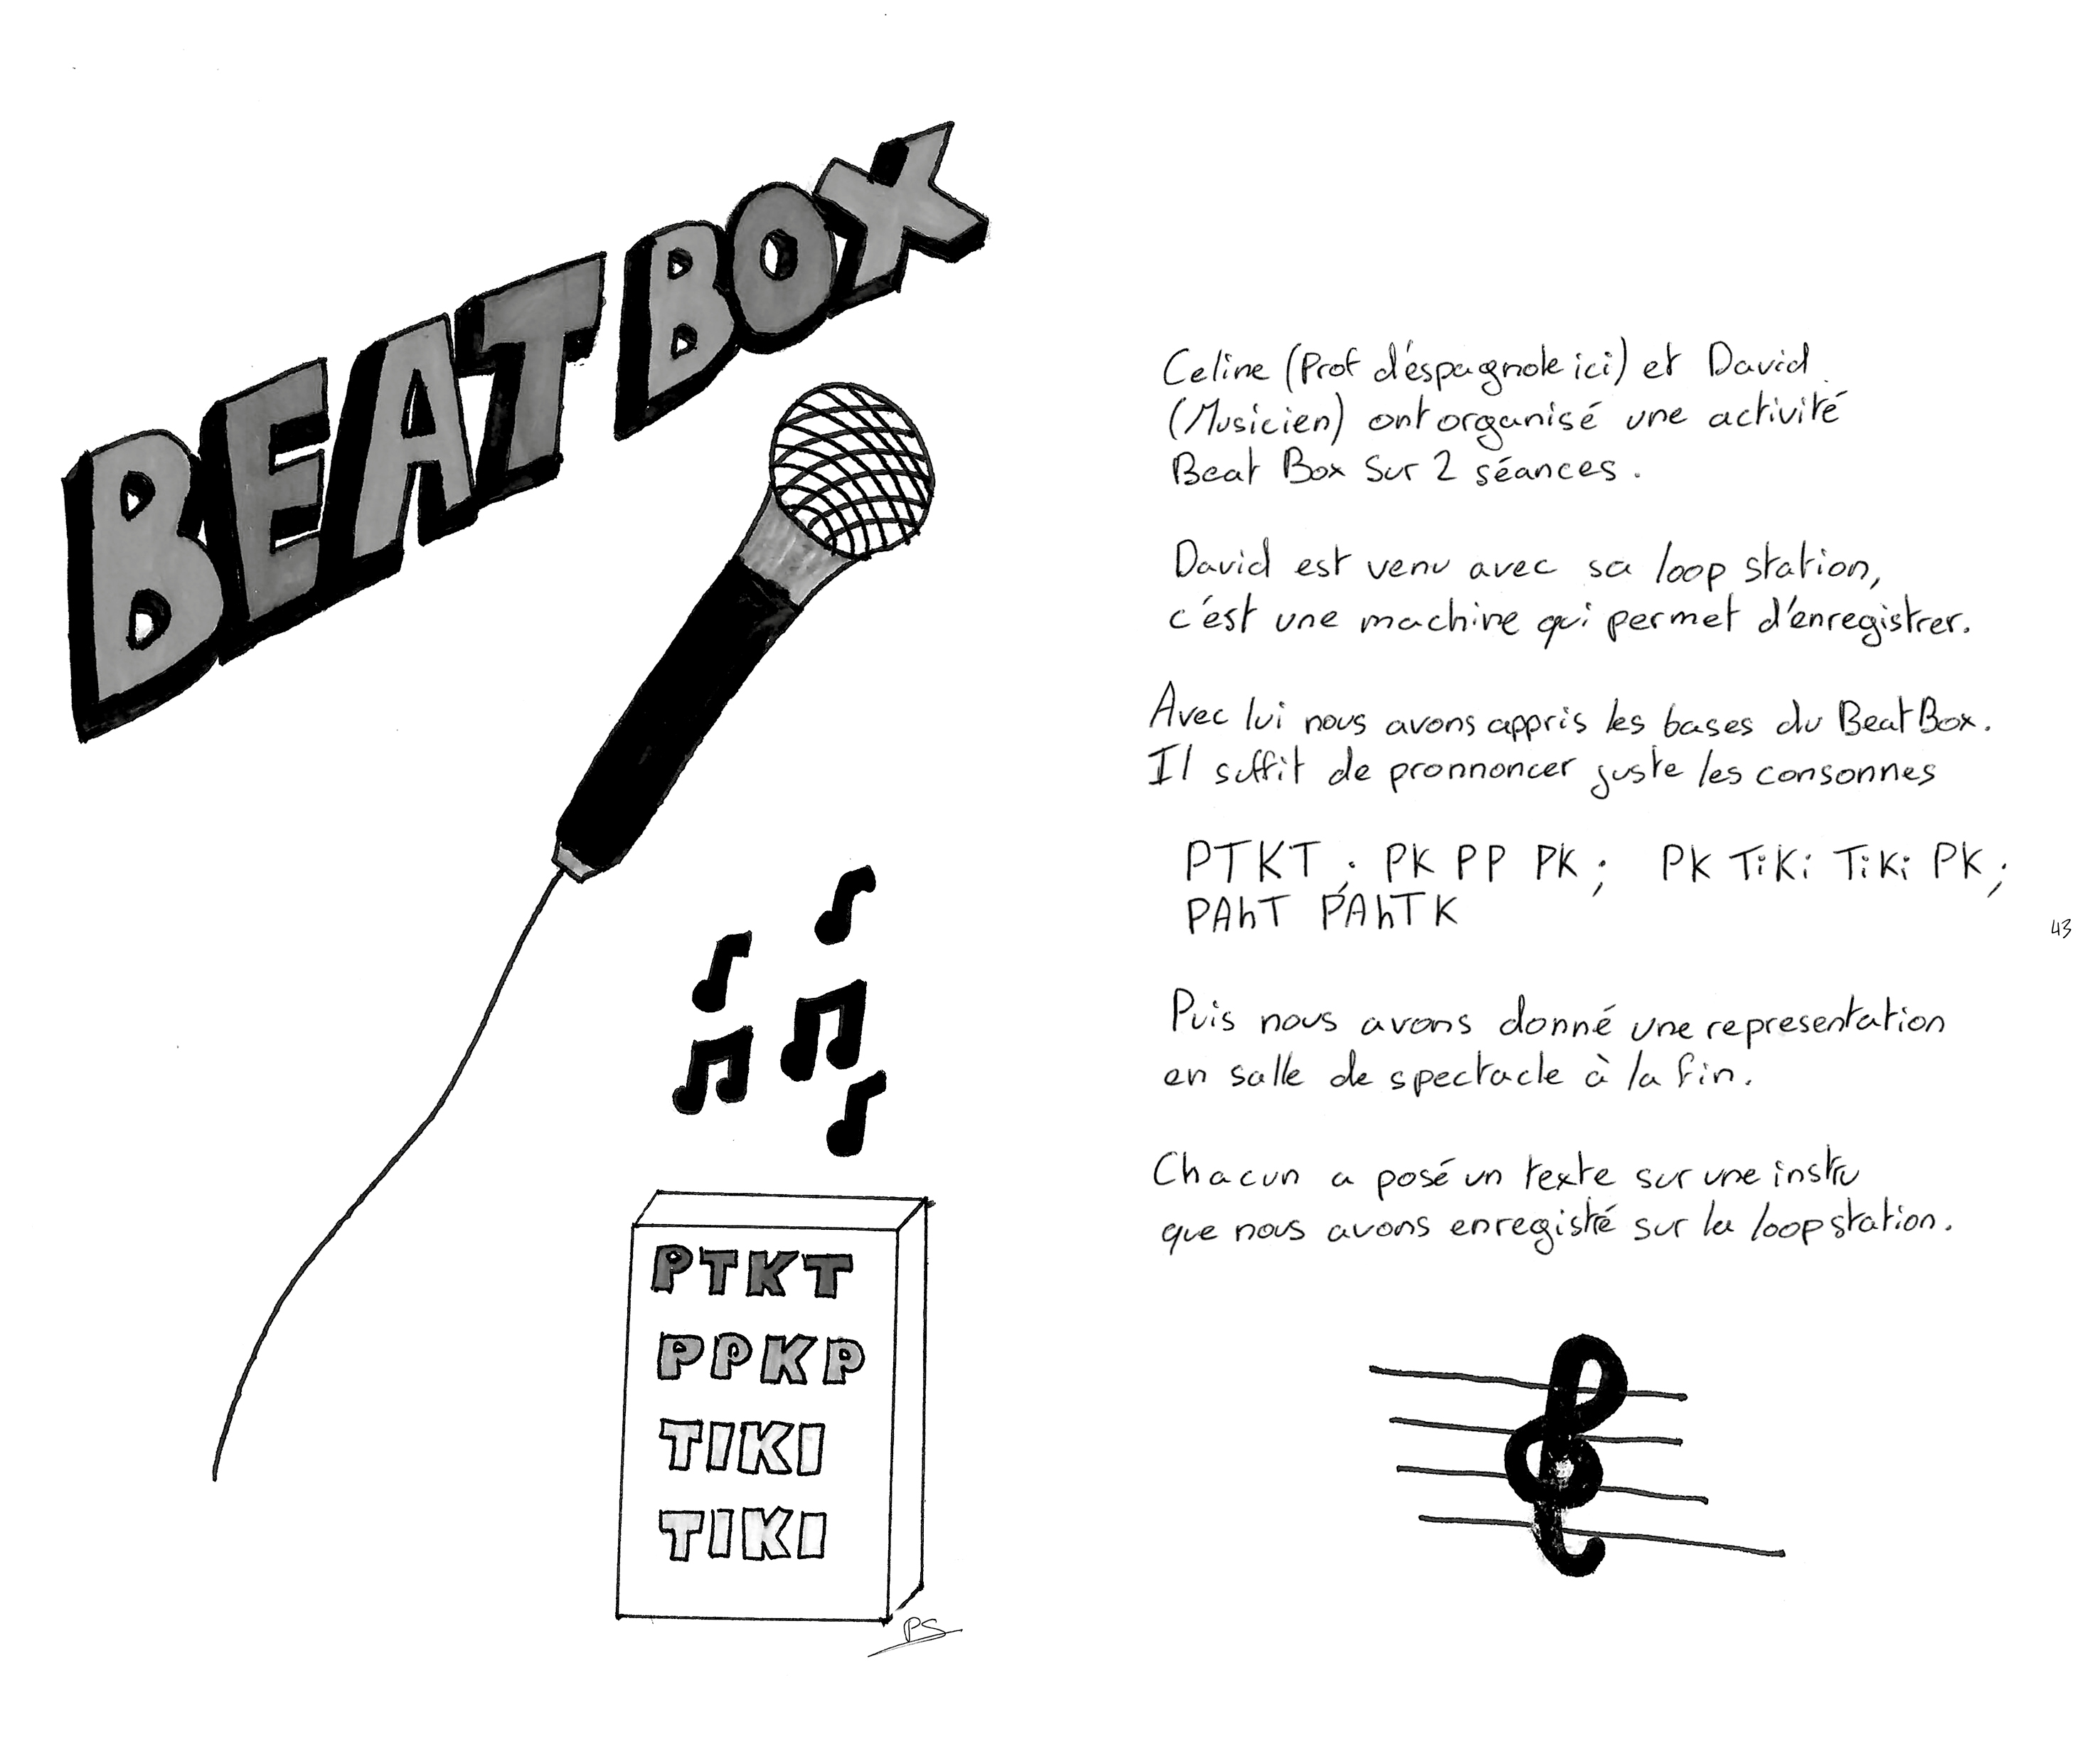 BEAT BOX
PTKT
PPKP
TIKI
TIKI
PS
Celine (Prof d'éspagnole ici) et David
(Musicien) ont organisé une activité
Beat Box Sur 2 séances.
David est venu avec sa loop station,
c'est une machine qui permet d'enregistrer.
Avec lui nous avons appris les bases du BeatBox.
Il suffit de pronnoncer juste les consonnes
PTKT ; PK PP PK ; PK TiKi TiKi PK ;
PAhT PAhTK
43
Puis nous avons donné une representation
en salle de spectacle à la fin.
Chacun a posé un texte sur une instru
que nous avons enregistré sur la loopstation.